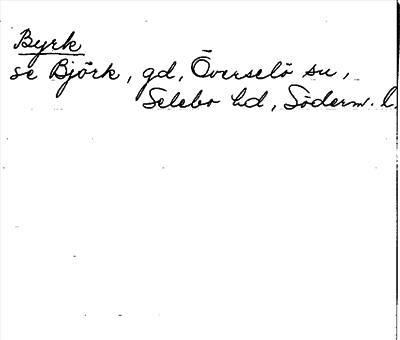 Byrk
se Björk, gd, Överselö sn,
Selebo hd, Söderm. l.